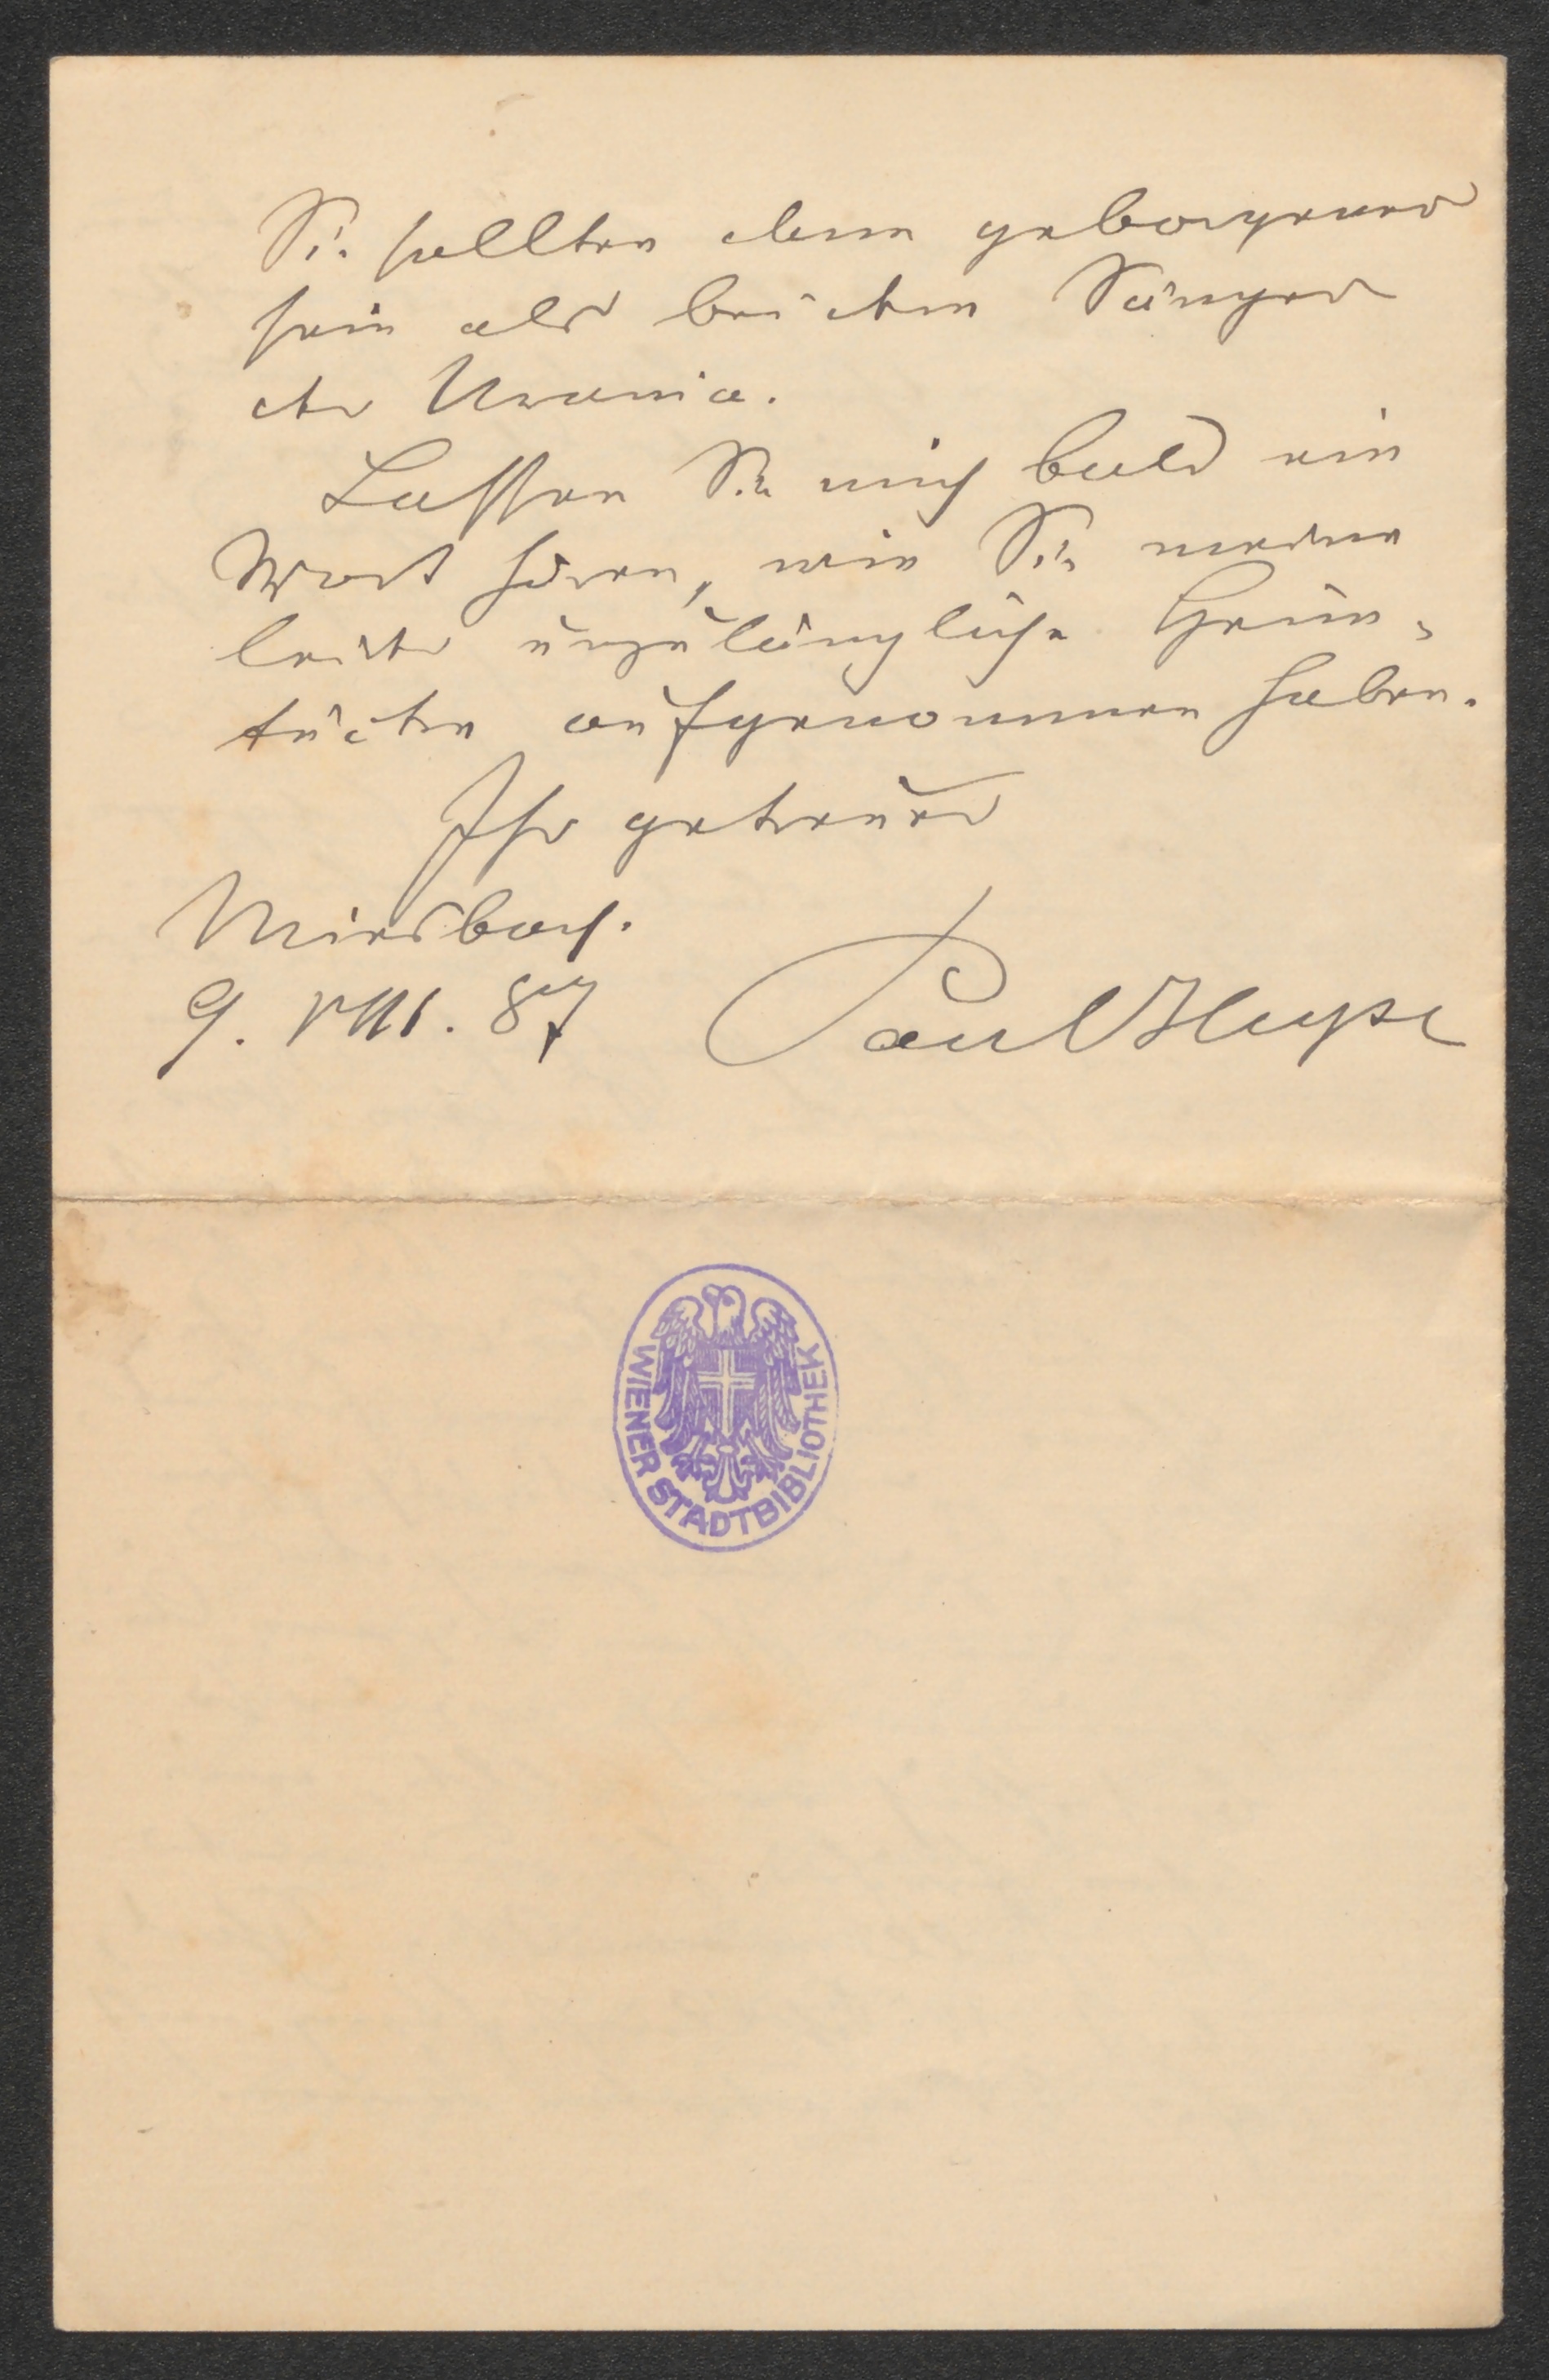 Sie sollten denn geborgener
sein als bei dem Sänger
der Urania.
Lassen Sie mich bald ein
Wort hören, wie Sie meine
leider unzulängliche
aufgenommen haben.
Ihr getreuer
Miesbach.
9. VIII. 87 Paul Heyse
WIENER STADTBIBLIOTHEK